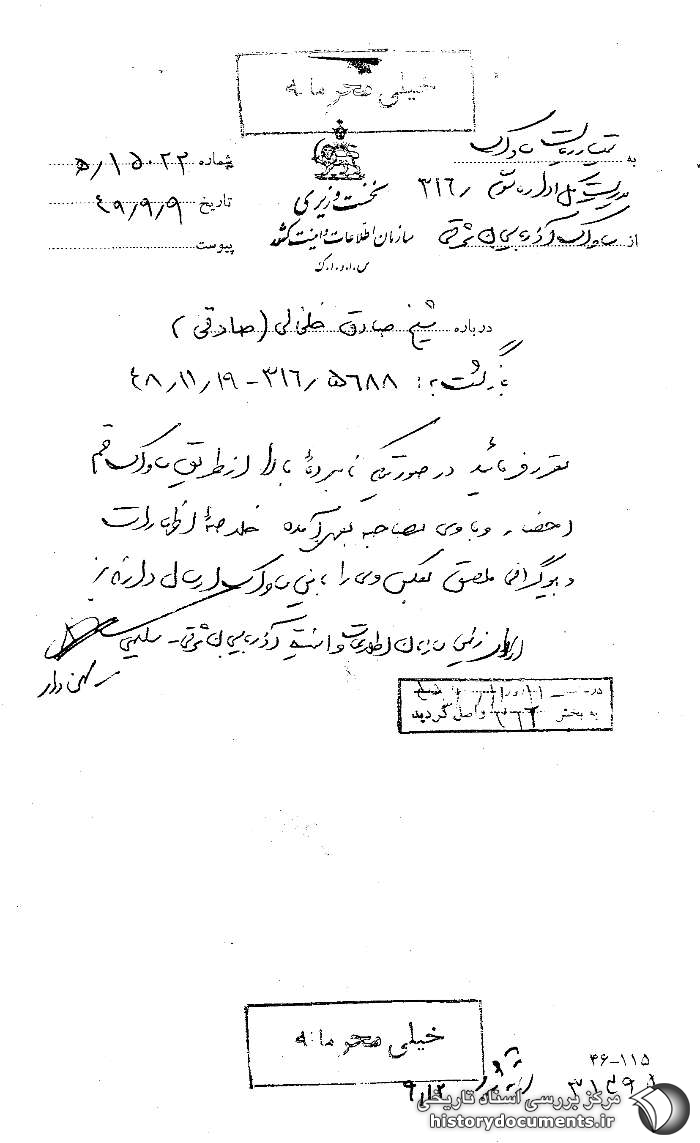 خیلی محرمانه
به تیمسار ریاست ساواک
مدیریت کل اداره سوم ۳۱۶
از ساواک آذربایجان شرقی
نخست وزیری
سازمان اطلاعات و امنیت کشور
س.ا.و.ا.ک
شماره ۵/۱۵۰۲۲
تاریخ ۴۹/۹/۹
پیوست
درباره شیخ صادق خلخالی (صادقی)
بازگشت به: ۳۱۶/۵۶۸۸-۴۸/۱۱/۱۹
مقرر فرمائید در صورتیکه نامبرده بالا از طریق ساواک قم
احضار و با وی مصاحبه بعمل آمده خلاصه اظهارات
و بیوگرافی ملصق بعکس وی را باین ساواک ارسال دارند
از طرف رئیس سازمان اطلاعات و امنیت آذربایجان شرقی - سلیمی
در ساعت روز صبح
به بخش ۳۱۶ واصل گردید
خیلی محرمانه
۴۶-۱۱۵
۹/۱۲
مرکز بررسی اسناد تاریخی
historydocuments.ir